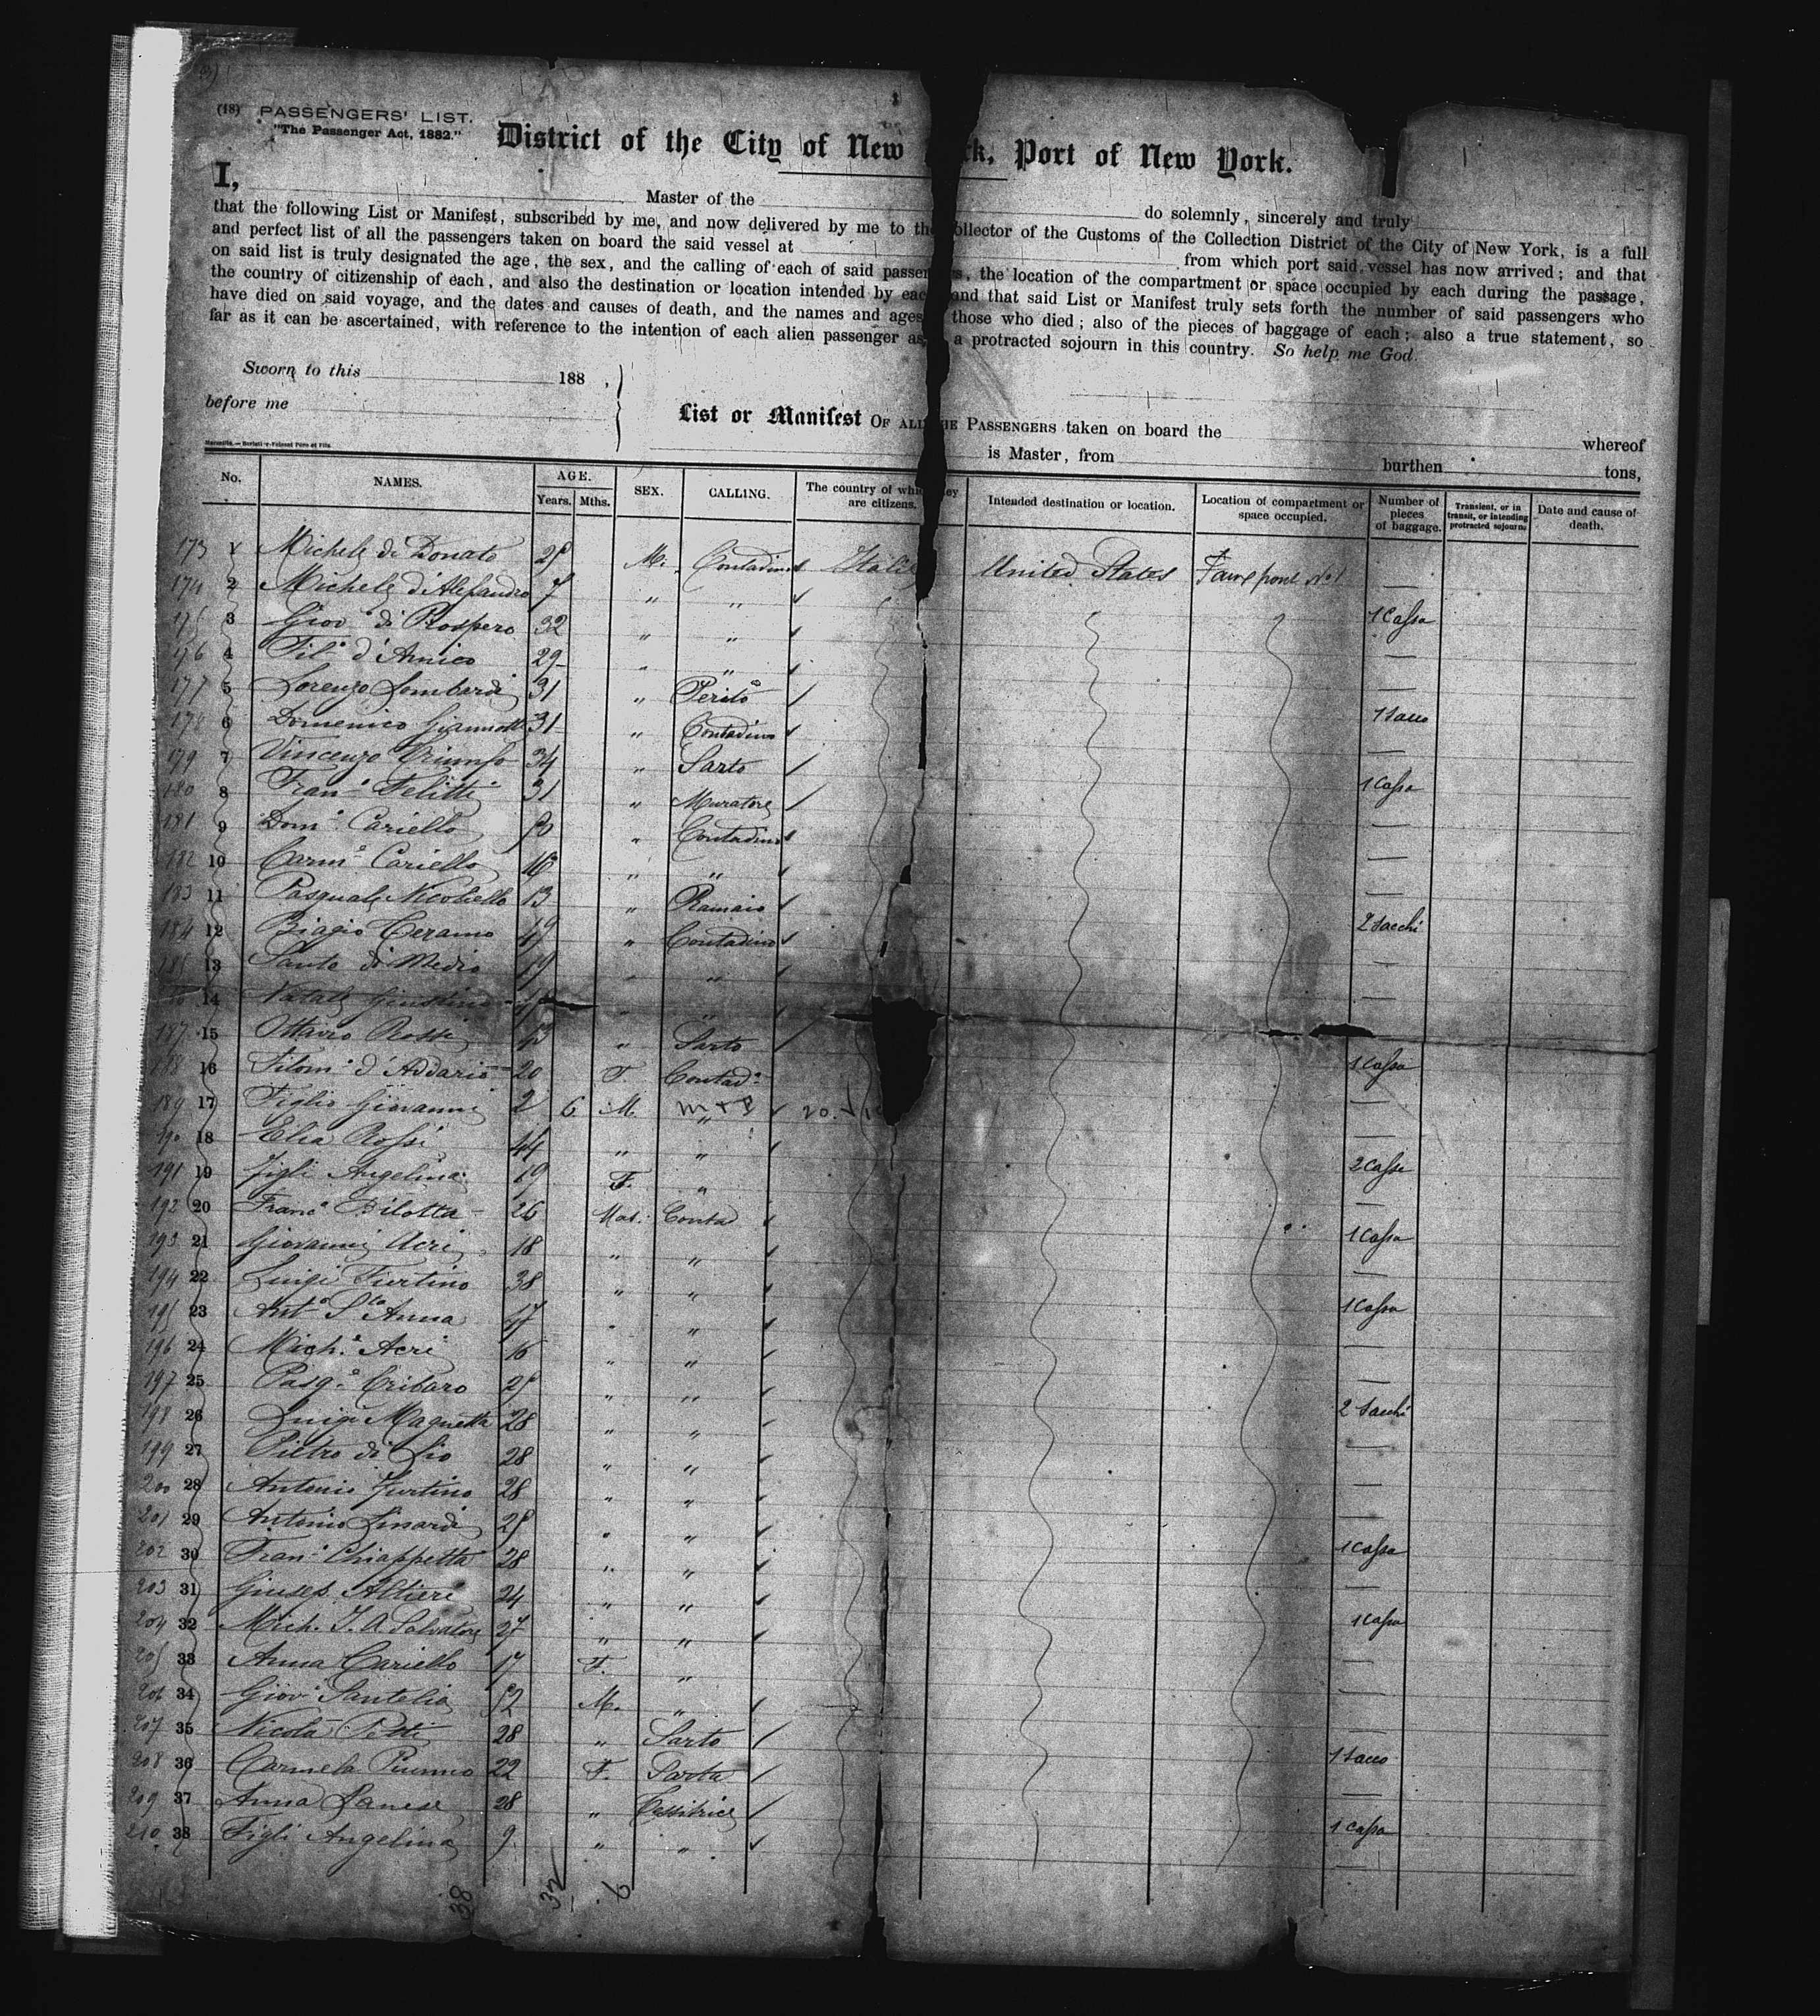 (18) PASSENGERS' LIST.
"The Passenger Act, 1882."
District of the City of New rk, Port of New York.
I, Master of the do solemnly, sincerely and truly
that the following List or Manifest, subscribed by me, and now delivered by me to the ollector of the Customs of the Collection District of the City of New York, is a full
and perfect list of all the passengers taken on board the said vessel at from which port said vessel has now arrived; and that
on said list is truly designated the age, the sex, and the calling of each of said passen s, the location of the compartment or space occupied by each during the passage,
the country of citizenship of each, and also the destination or location intended by eac and that said List or Manifest truly sets forth the number of said passengers who
have died on said voyage, and the dates and causes of death, and the names and ages those who died; also of the pieces of baggage of each; also a true statement, so
far as it can be ascertained, with reference to the intention of each alien passenger as a protracted sojourn in this country. So help me God.
Sworn to this 188 ,
before me
List or Manifest OF ALL HE PASSENGERS taken on board the whereof
is Master, from burthen tons,
No. NAMES. AGE. Years. Mths. SEX. CALLING. The country of whi ey are citizens. Intended destination or location. Location of compartment or space occupied. Number of pieces of baggage. Transient, or in transit, or intending protracted sojourn. Date and cause of death.
173 1 Michele di Donato M. Contadino Italie United States No 1
174 2 Michele d'Alesandro 7 " "
175 3 Giov di Prospero 32 " " 1 Cassa
176 4 Fil d'Amico 29 " "
177 5 Lorenzo Lombardi 31 " Perito
178 6 Domenico Giannotti 31 " Contadino 1 sacco
179 7 Vincenzo Triunfo 34 " Sarto
180 8 Fran Felitti 31 " Muratore 1 Cassa
181 9 Dom Cariello " Contadino
182 10 Carm Cariello 16 " "
183 11 Pasquale Nicoliello 13 " Ramaio
184 12 Biagio Ceramo 49 " Contadino 2 sacchi
185 13 Santo di Medio 19 " "
14 Natale Giustino " "
187 15 Ottavio Rossi " Sarto
188 16 Filom d'Addario 20 F. Contad. 1 Cassa
189 17 Figlio Giovanni 2 6 M. "
190 18 Elia Rossi 44 " "
191 19 Figli Angelina 19 F. " 2 Casse
192 20 Franc Bilotta 26 Mas. Contad
193 21 Giovanni Acri 18 " " 1 Cassa
194 22 Luigi Fiertino 38 " "
195 23 Ant Sta Anna 17 " " 1 Cassa
196 24 Mich. Acri 16 " "
197 25 Pasq. Cribaro " "
198 26 Luigi Magnetta 28 " " 2 sacchi
199 27 Pietro di Lio 28 " "
200 28 Antonio Furtino 28 " "
201 29 Antonio Linardi " "
202 30 Fran Chiappetta 28 " " 1 Cassa
203 31 Giusep. Altieri 24 " "
204 32 Mich. Salvatore 27 " " 1 Cassa
205 33 Anna Cariello 17 F. "
206 34 Giov Santelia 52 M. "
207 35 Nicola Petti 28 " Sarto
208 36 Carmela Piumo 22 F. Sarta 1 sacco
209 37 Anna Lanese 28 " Tessitrice
210 38 Figli Angelina 9 " " 1 Cassa
38 32 6